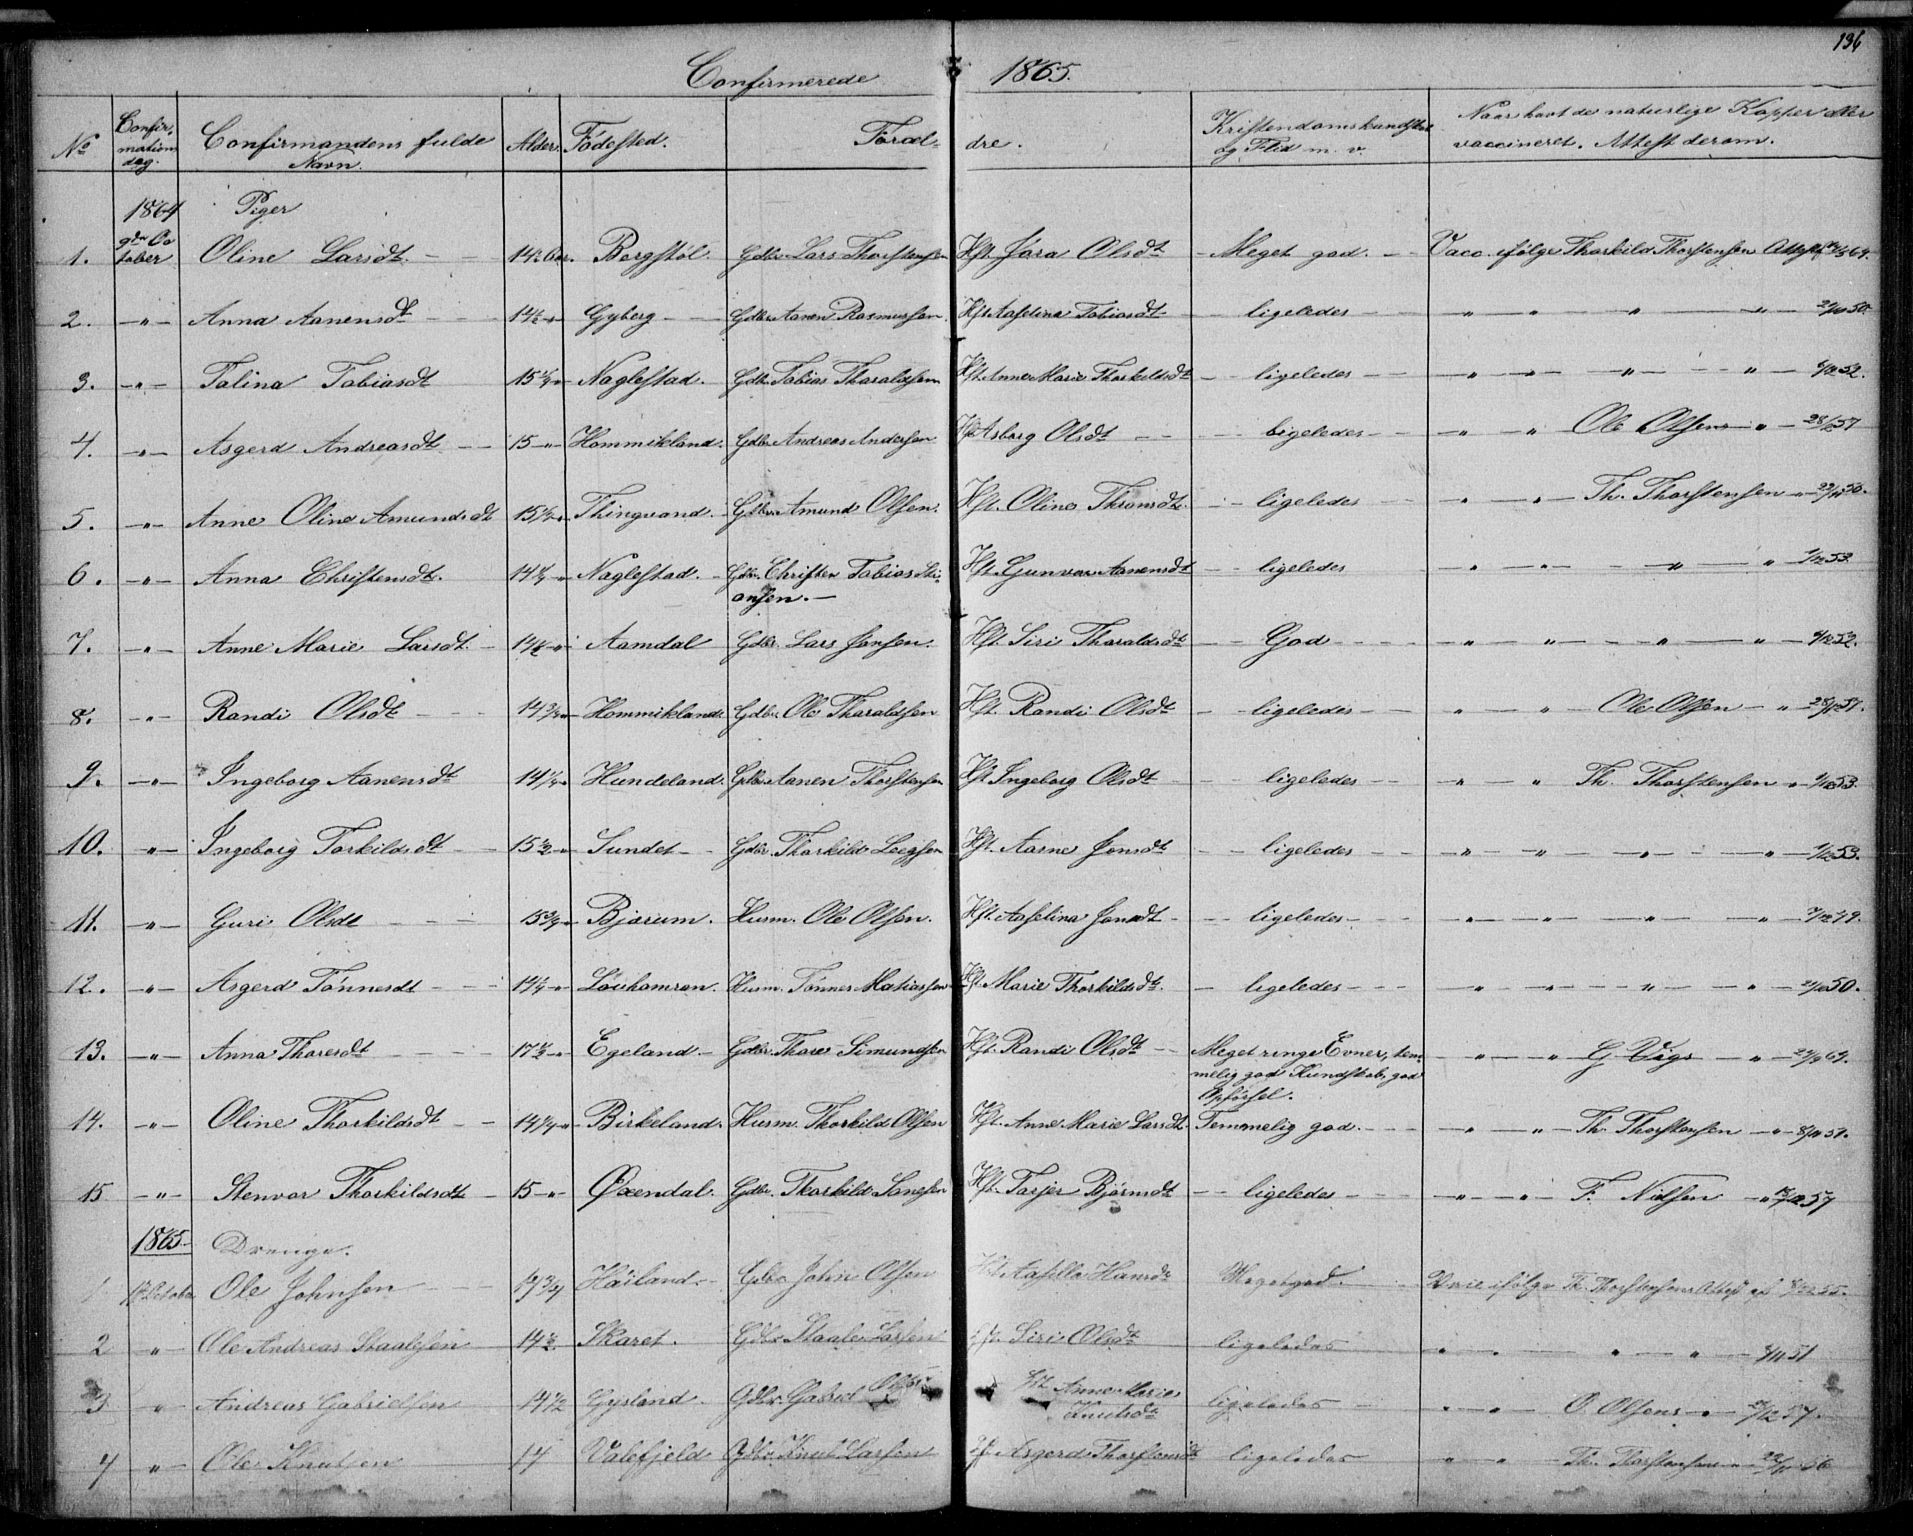 136
Confirmerede 1865.
No Confirmations dag. Confirmandens fulde Navn. Alder. Födested. Foræl- dre. Kristendomskundskab og Flid m. v. Naar havt de naturlige Kopper eller vaccineret. Attest derom.
1864 Piger
1. 9de October Oline Larsdt. 14 Aar. Bergstöl. Gdbr. Lars Thorstensen Hst. Jora Olsdt Meget god. Vacc. ifölge Thorkild Thorstensen Attest
2. " Anna Aanensdt 14½ " Gyberg Gdbr. Aanen Rasmussen Hst. Aaselina Tobiasdt ligeledes " " " " 50.
3. " Talina Tobiasdt 15 Naglestad. Gdbr. Tobias Tharaldsen Hst. Anne Marie Thorkildsdt ligeledes " " " " 52.
4. " Asgerd Andreasdt 15 " Hommikland. Gdbr. Andreas Andersen Hst. Asborg Olsdt ligeledes " " Ole Olsens " 57
5. " Anne Oline Amundsdt 15 Thingvand. Gdbr. Amund Olsen. Hst. Oline Thromsdt. ligeledes " " Th. Thorstensen " 50.
6. " Anna Christensdt. 14 Naglestad. Gdbr. Christen Tobias Sti-
ansen. Hst. Gunvor Aanensdt ligeledes " " " " 53.
7. " Anne Marie Larsdt. 14 " Aamdal Gdbr. Lars Jonsen. Hst. Siri Tharaldsdt God " " " " 52.
8. " Randi Olsdt 14¾ Hommikland. Gdbr. Ole Tharaldsen Hst. Randi Olsdt ligeledes " " Ole Olsen " 57.
9. " Ingeborg Aanensdt 14 Hundeland. Gdbr. Aanen Thorstensen Hst. Ingeborg Olsdt ligeledes " " Th. Thorstensen " 53.
10. " Ingeborg Torkildsdt 15½ " Sundet Gdbr. Thorkild Hst. Aasne Jonsdt ligeledes " " " " 53.
11. " Guri Olsdt 15¾ Bjærum. Husm. Ole Olsen. Hst. Aaselina Jonsdt ligeledes " " " " 49.
12. " Asgerd Tönnesdt 14 " Husm. Tönnes Matiassen Hst. Marie Thorkildsdt. ligeledes " " " " 50.
13. " Anna Thoresdt 17½ " Egeland. Gdbr. Thore Simundsen Hst. Randi Olsdt Meget ringe Evner, tem-
melig god Kundskab, god
Opförsel. " " G Vigs "
14. " Oline Thorkildsdt 14 Birkeland. Husm. Thorkild Olsen Hst. Anne Marie Larsdt Temmelig god. " " Th. Thorstensen "
15 " Stenvor Thorkildsdt 15 " Öxendal. Gdbr. Thorkild Hst. Tarjer Björnsdt ligeledes " " F. Nielsen " 57
1865 Drenge.
1 October Ole Johnsen 14¾ Häiland. Gdbr. John Olsen Hst. Aasille Hansdt Meget god. Vacc ifölge Th. Thorstensens Attest af 55.
2 " Ole Andreas Staalesen 14½ Skaret. Gdbr. Staale Larsen Hst. Siri Olsdt ligeledes " " " " 51
3 " Andreas Gabrielsen 14½ Gysland. Gdbr. Gabriel Olsen Hst. Anne Marie
Knutsdt ligeledes " " O. Olsens " 57.
4 " Ole Knutsen 14 Valefjeld Gdbr. Knut Larsen Hst. Asgerd Thorstensdt ligeledes " " Th. Thorstensen " 56